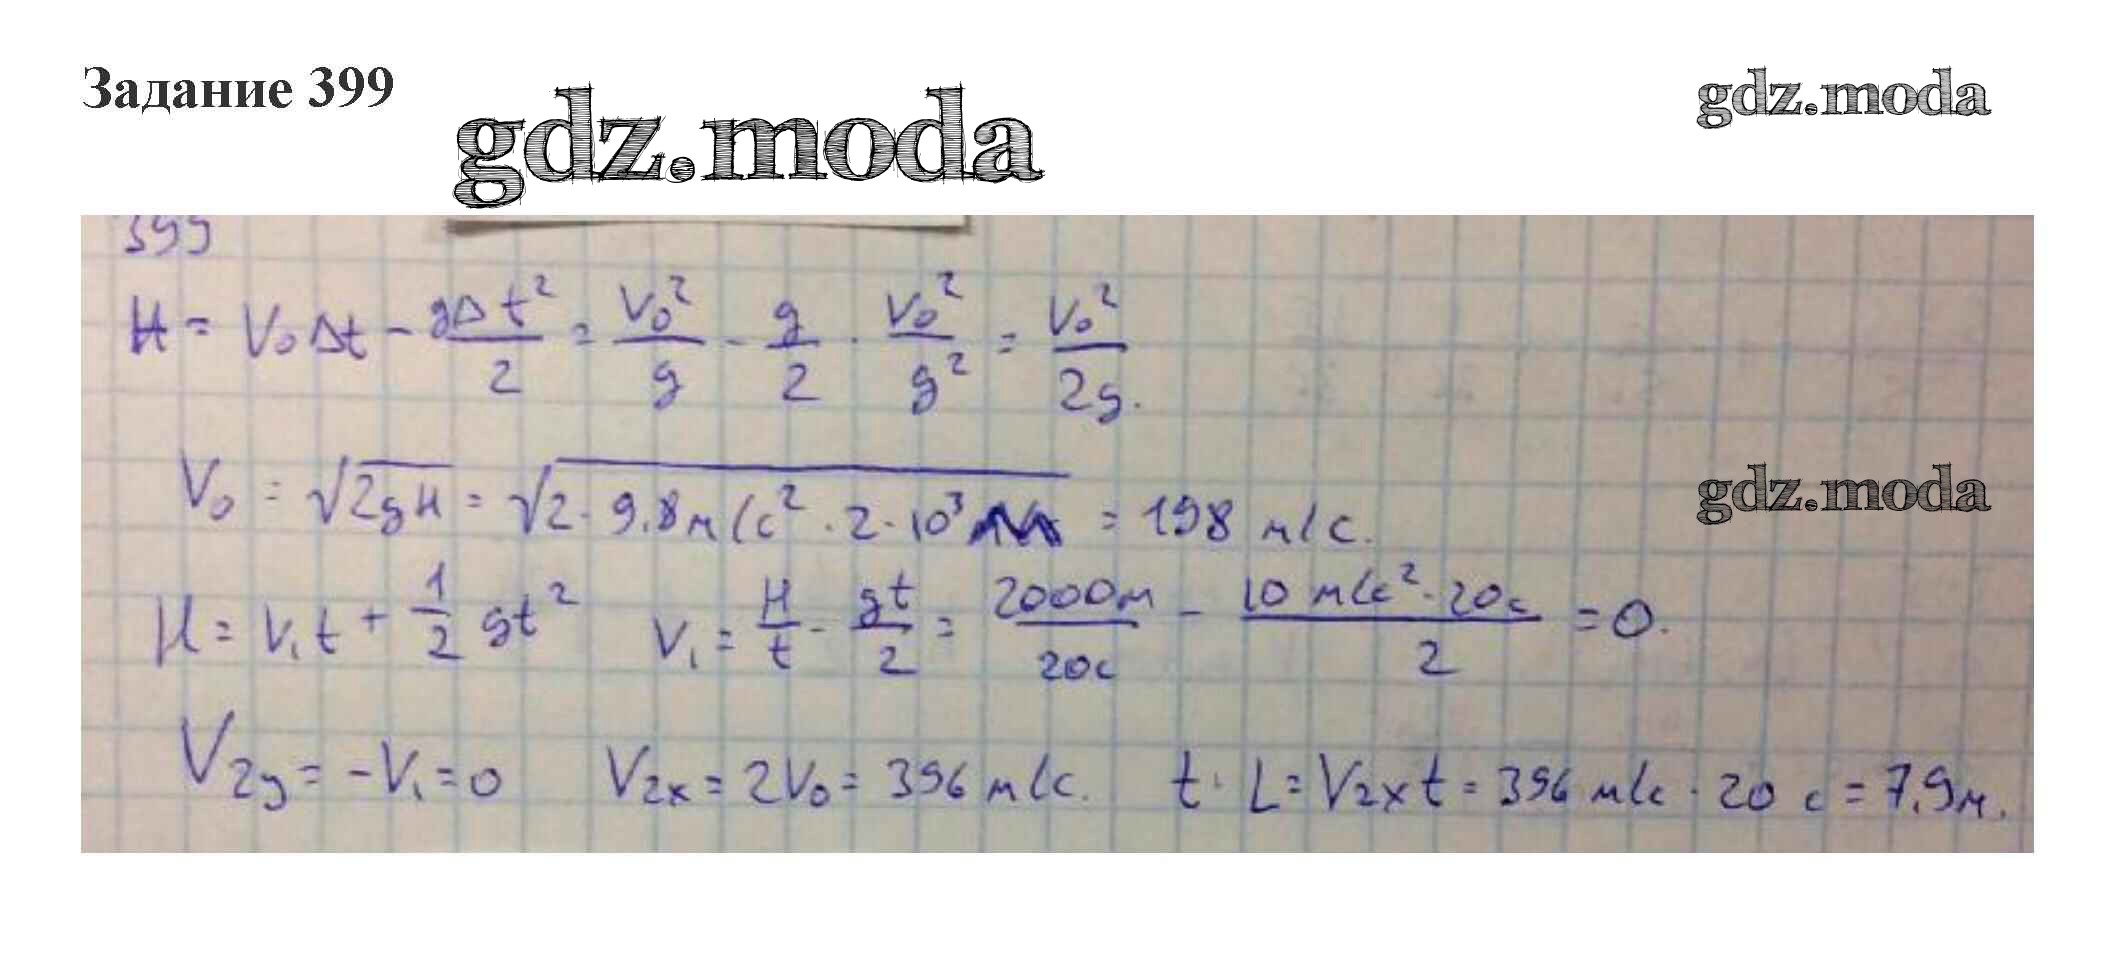 Задание 399
gdz.moda
gdz.moda
399
H = V₀Δt - gΔt²/2 = V₀²/g - g/2 · V₀²/g² = V₀²/2g.
V₀ = √2gH = √2·9,8м/с²·2·10³м = 198 м/с.
gdz.moda
H = V₁t + 1/2 gt² V₁ = H/t - gt/2 = 2000м/20с - 10 м/с²·20с/2 = 0.
V₂y = -V₁ = 0 V₂x = 2V₀ = 396 м/с. t· L = V₂xt = 396 м/с · 20 с = 7,9м.